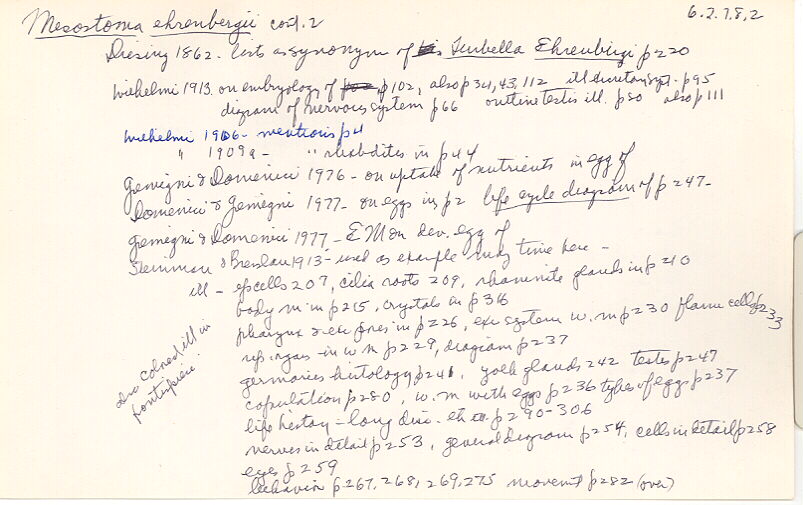 Mesostoma ehrenbergii cont. 2
6.2.7.8.2
Diesing 1862. lists as synonym of Turbella Ehrenbirgi p220
Wilhelmi 1913. on embryology of p102, also p34, 43, 112 ill excretory syst. p95
diagram of nervous system p66 outline testis ill. p80 also p111
Wilhelmi 1906 - mentions p4
" 1909a - " rhabdites in p44
Gemegni & Domenici 1976 - on uptake of nutrients in egg of
Domenici & Gemegni 1977 - on eggs in p2 life cycle diagram of p247-
Gemegni & Domenici 1977 - EM on dev. egg of
Steinmann & Bresslau 1913 - used as example many time here -
ill - ep cells 207, cilia roots 209, rhammite glands in p210
body m in p215, crystals in p316
pharynx & exc pores in p226, exc system w.m p230 flame cells p233
rep. organs - in w m p229, diagram p237
germaries histology p241, yolk glands 242 testes p247
copulation p280, w.m with eggs p236 types of eggs p237
life history - long disc. etc. p290-306
nerves in detail p253, general diagram p254, cells in detail p258
eyes p259
behavior p267, 268, 269, 275 movemt p282 (over)
also colored ill in
frontispiece.